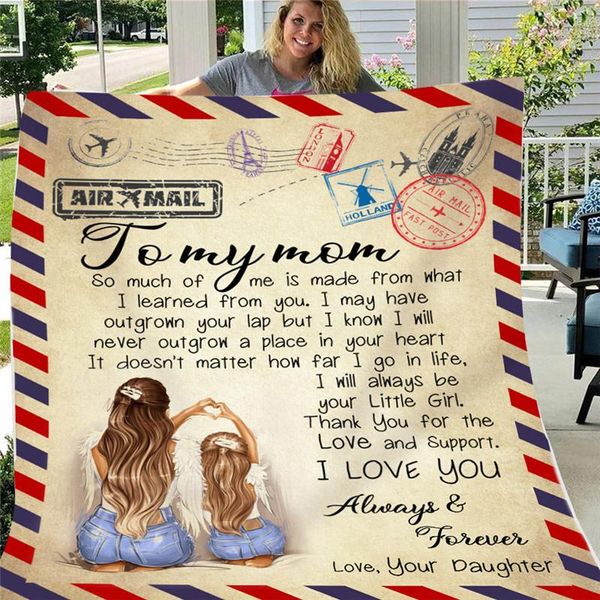 LONDON
PRAHA
AIR MAIL
HOLLAND
AIR MAIL
FAST POST
To my mom
So much of me is made from what
I learned from you. I may have
outgrown your lap but I know I will
never outgrow a place in your heart
It doesn't matter how far I go in life,
I will always be
your Little Girl.
Thank You for the
LOVE and Support.
I LOVE YOU
Always &
Forever
Love, Your Daughter